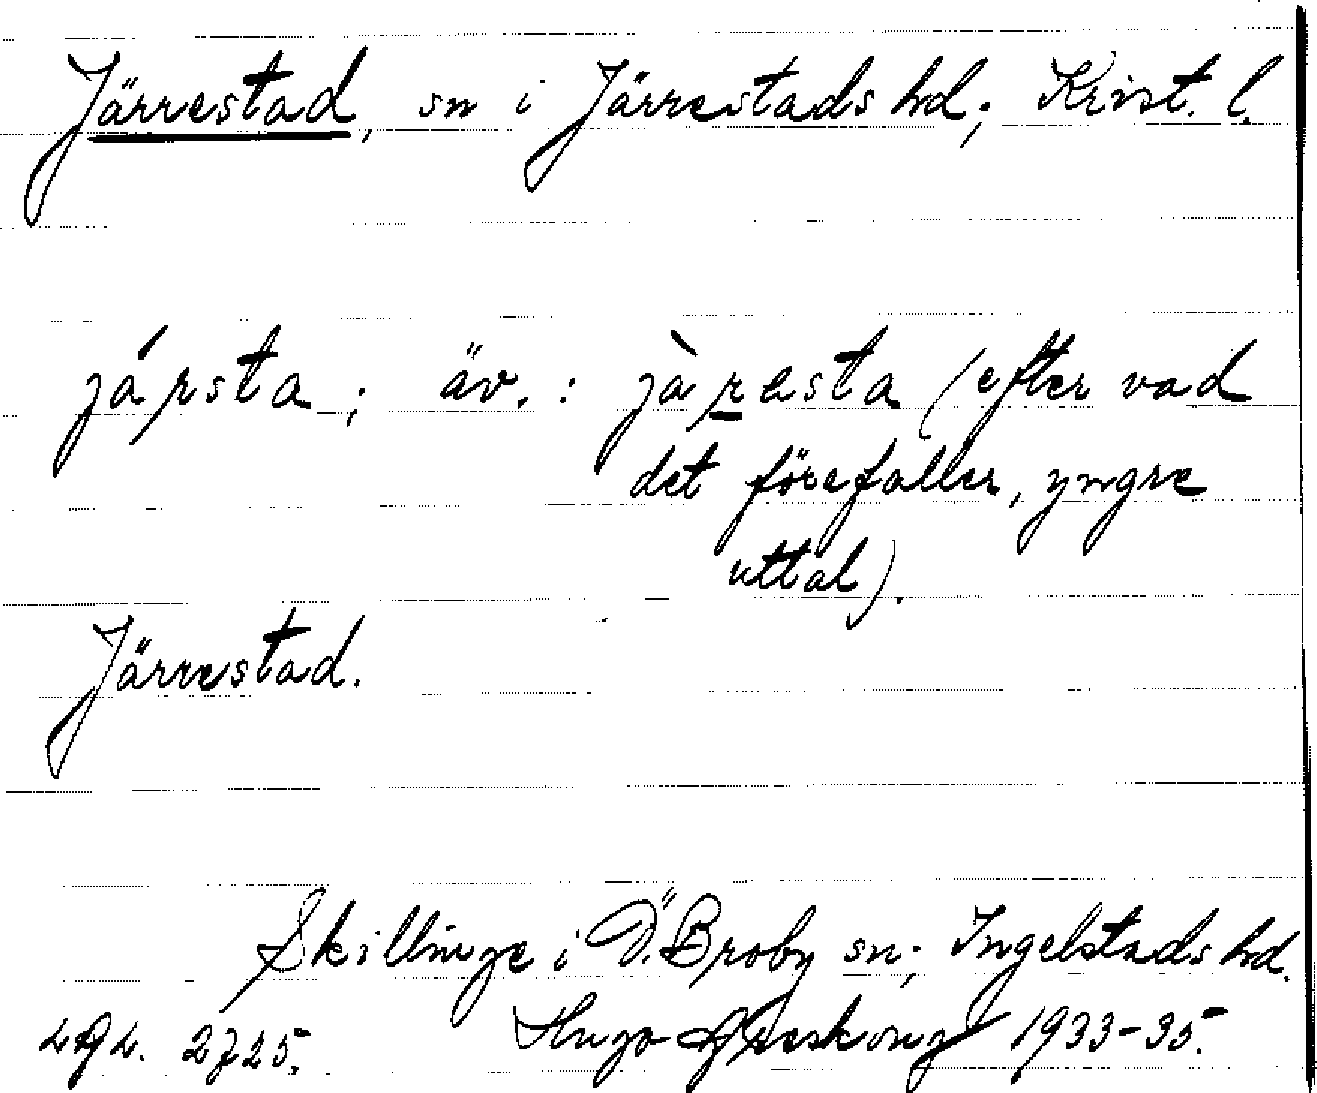 Järrestad, sn i Järrestads hd; Krist. l.
jársta; äv.: jàresta (efter vad
det förefaller, yngre
uttal).
Järrestad.
Skillinge i Ö. Broby sn; Ingelstads hd.
2725. Hugo Areskoug 1933-35.